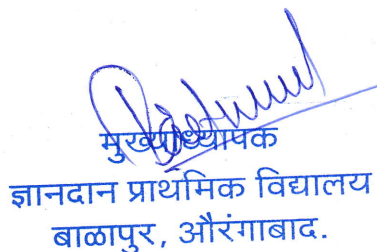 मुख्याध्यापक
ज्ञानदान प्राथमिक विद्यालय
बाळापुर, औरंगाबाद.